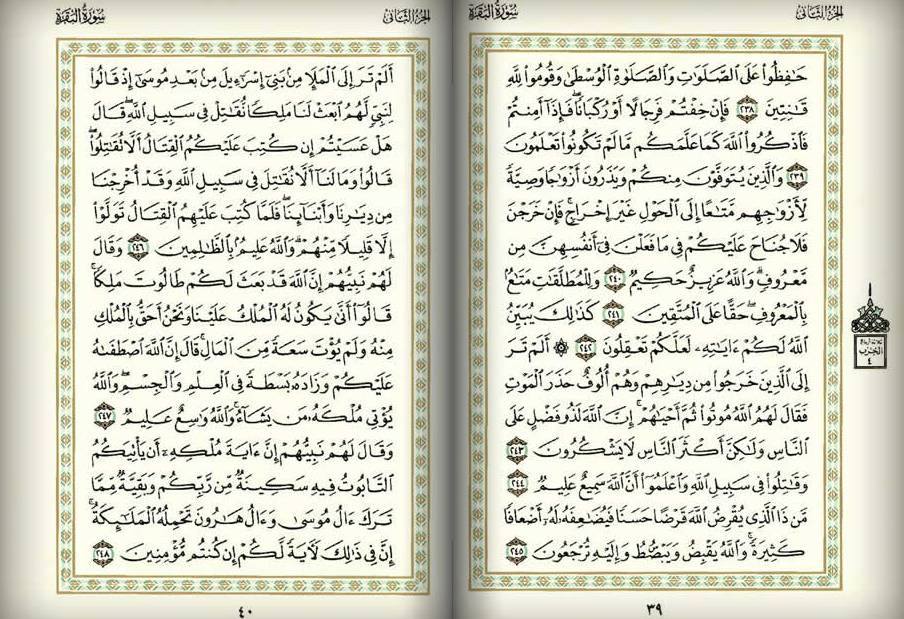 سُورَةُ البَقَرَةِ
الجُزءُ الثَّانِي
حَٰفِظُوا۟ عَلَى ٱلصَّلَوَٰتِ وَٱلصَّلَوٰةِ ٱلْوُسْطَىٰ وَقُومُوا۟ لِلَّهِ
قَٰنِتِينَ ٢٣٨ فَإِنْ خِفْتُمْ فَرِجَالًا أَوْ رُكْبَانًا ۖ فَإِذَآ أَمِنتُمْ
فَٱذْكُرُوا۟ ٱللَّهَ كَمَا عَلَّمَكُم مَّا لَمْ تَكُونُوا۟ تَعْلَمُونَ
٢٣٩ وَٱلَّذِينَ يُتَوَفَّوْنَ مِنكُمْ وَيَذَرُونَ أَزْوَٰجًا وَصِيَّةً
لِّأَزْوَٰجِهِم مَّتَٰعًا إِلَى ٱلْحَوْلِ غَيْرَ إِخْرَاجٍ ۚ فَإِنْ خَرَجْنَ
فَلَا جُنَاحَ عَلَيْكُمْ فِى مَا فَعَلْنَ فِىٓ أَنفُسِهِنَّ مِن
مَّعْرُوفٍ ۗ وَٱللَّهُ عَزِيزٌ حَكِيمٌ ٢٤٠ وَلِلْمُطَلَّقَٰتِ مَتَٰعٌۢ
بِٱلْمَعْرُوفِ ۖ حَقًّا عَلَى ٱلْمُتَّقِينَ ٢٤١ كَذَٰلِكَ يُبَيِّنُ
ٱللَّهُ لَكُمْ ءَايَٰتِهِۦ لَعَلَّكُمْ تَعْقِلُونَ ٢٤٢ ۞ أَلَمْ تَرَ
إِلَى ٱلَّذِينَ خَرَجُوا۟ مِن دِيَٰرِهِمْ وَهُمْ أُلُوفٌ حَذَرَ ٱلْمَوْتِ
فَقَالَ لَهُمُ ٱللَّهُ مُوتُوا۟ ثُمَّ أَحْيَٰهُمْ ۚ إِنَّ ٱللَّهَ لَذُو فَضْلٍ عَلَى
ٱلنَّاسِ وَلَٰكِنَّ أَكْثَرَ ٱلنَّاسِ لَا يَشْكُرُونَ ٢٤٣
وَقَٰتِلُوا۟ فِى سَبِيلِ ٱللَّهِ وَٱعْلَمُوٓا۟ أَنَّ ٱللَّهَ سَمِيعٌ عَلِيمٌ ٢٤٤
مَّن ذَا ٱلَّذِى يُقْرِضُ ٱللَّهَ قَرْضًا حَسَنًا فَيُضَٰعِفَهُۥ لَهُۥٓ أَضْعَافًا
كَثِيرَةً ۚ وَٱللَّهُ يَقْبِضُ وَيَبْصُۜطُ وَإِلَيْهِ تُرْجَعُونَ ٢٤٥
ثلاثة أرباع
الحزب
٤
٣٩
سُورَةُ البَقَرَةِ
الجُزءُ الثَّانِي
أَلَمْ تَرَ إِلَى ٱلْمَلَإِ مِنۢ بَنِىٓ إِسْرَٰٓءِيلَ مِنۢ بَعْدِ مُوسَىٰٓ إِذْ قَالُوا۟
لِنَبِىٍّ لَّهُمُ ٱبْعَثْ لَنَا مَلِكًا نُّقَٰتِلْ فِى سَبِيلِ ٱللَّهِ ۖ قَالَ
هَلْ عَسَيْتُمْ إِن كُتِبَ عَلَيْكُمُ ٱلْقِتَالُ أَلَّا تُقَٰتِلُوا۟ ۖ
قَالُوا۟ وَمَا لَنَآ أَلَّا نُقَٰتِلَ فِى سَبِيلِ ٱللَّهِ وَقَدْ أُخْرِجْنَا
مِن دِيَٰرِنَا وَأَبْنَآئِنَا ۖ فَلَمَّا كُتِبَ عَلَيْهِمُ ٱلْقِتَالُ تَوَلَّوْا۟
إِلَّا قَلِيلًا مِّنْهُمْ ۗ وَٱللَّهُ عَلِيمٌۢ بِٱلظَّٰلِمِينَ ٢٤٦ وَقَالَ
لَهُمْ نَبِيُّهُمْ إِنَّ ٱللَّهَ قَدْ بَعَثَ لَكُمْ طَالُوتَ مَلِكًا ۚ
قَالُوٓا۟ أَنَّىٰ يَكُونُ لَهُ ٱلْمُلْكُ عَلَيْنَا وَنَحْنُ أَحَقُّ بِٱلْمُلْكِ
مِنْهُ وَلَمْ يُؤْتَ سَعَةً مِّنَ ٱلْمَالِ ۚ قَالَ إِنَّ ٱللَّهَ ٱصْطَفَىٰهُ
عَلَيْكُمْ وَزَادَهُۥ بَسْطَةً فِى ٱلْعِلْمِ وَٱلْجِسْمِ ۖ وَٱللَّهُ
يُؤْتِى مُلْكَهُۥ مَن يَشَآءُ ۚ وَٱللَّهُ وَٰسِعٌ عَلِيمٌ ٢٤٧
وَقَالَ لَهُمْ نَبِيُّهُمْ إِنَّ ءَايَةَ مُلْكِهِۦٓ أَن يَأْتِيَكُمُ
ٱلتَّابُوتُ فِيهِ سَكِينَةٌ مِّن رَّبِّكُمْ وَبَقِيَّةٌ مِّمَّا
تَرَكَ ءَالُ مُوسَىٰ وَءَالُ هَٰرُونَ تَحْمِلُهُ ٱلْمَلَٰٓئِكَةُ ۚ
إِنَّ فِى ذَٰلِكَ لَءَايَةً لَّكُمْ إِن كُنتُم مُّؤْمِنِينَ ٢٤٨
٤٠